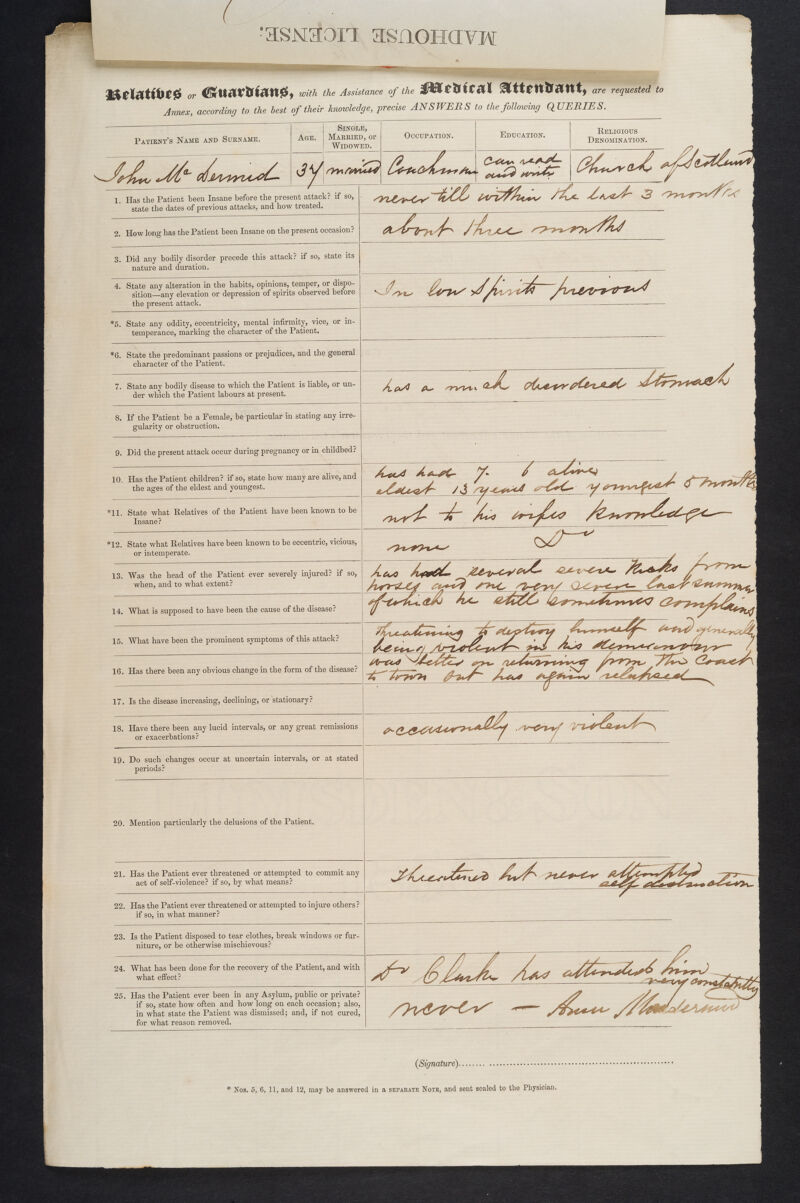 MADHOUSE LICENSE.
Relatives or Guardians, with the Assistance of the Medical Attendant, are requested to
Annex, according to the best of their knowledge, precise ANSWERS to the following QUERIES.
PATIENT'S NAME AND SURNAME. AGE. SINGLE, MARRIED, OR WIDOWED. OCCUPATION. EDUCATION. RELIGIOUS DENOMINATION.
John Mc Dermid 37 married Coachman can read and write Church of Scotland
1. Has the Patient been Insane before the present attack? if so,
state the dates of previous attacks, and how treated.
never till within the last 3 months
2. How long has the Patient been Insane on the present occasion?
about three months
3. Did any bodily disorder precede this attack? if so, state its
nature and duration.
4. State any alteration in the habits, opinions, temper, or dispo-
sition—any elevation or depression of spirits observed before
the present attack.
In low Spirits previous
*5. State any oddity, eccentricity, mental infirmity, vice, or in-
temperance, marking the character of the Patient.
*6. State the predominant passions or prejudices, and the general
character of the Patient.
7. State any bodily disease to which the Patient is liable, or un-
der which the Patient labours at present.
has a much disordered Stomach
8. If the Patient be a Female, be particular in stating any irre-
gularity or obstruction.
9. Did the present attack occur during pregnancy or in childbed?
10. Has the Patient children? if so, state how many are alive, and
the ages of the eldest and youngest.
has had 7. 6 alive
eldest 13 years old youngest 5 months
*11. State what Relatives of the Patient have been known to be
Insane?
not to his wifes Knowledge
*12. State what Relatives have been known to be eccentric, vicious,
or intemperate.
none Do
13. Was the head of the Patient ever severely injured? if so,
when, and to what extent?
has had several severe Kicks from
horses and one very severe last summer
of which he still sometimes complains
14. What is supposed to have been the cause of the disease?
15. What have been the prominent symptoms of this attack?
threatening to destroy himself and generally
being violent in his demeanour
16. Has there been any obvious change in the form of the disease?
was better on returning from the Coast
to town but has again relapsed
17. Is the disease increasing, declining, or stationary?
18. Have there been any lucid intervals, or any great remissions
or exacerbations?
occasionally very violent
19. Do such changes occur at uncertain intervals, or at stated
periods?
20. Mention particularly the delusions of the Patient.
21. Has the Patient ever threatened or attempted to commit any
act of self-violence? if so, by what means?
Threatened but never attempted
self destruction
22. Has the Patient ever threatened or attempted to injure others?
if so, in what manner?
23. Is the Patient disposed to tear clothes, break windows or fur-
niture, or be otherwise mischievous?
24. What has been done for the recovery of the Patient, and with
what effect?
Dr Clark has attended him
very constantly
25. Has the Patient ever been in any Asylum, public or private?
if so, state how often and how long on each occasion; also,
in what state the Patient was dismissed; and, if not cured,
for what reason removed.
never —
(Signature)
* Nos. 5, 6, 11, and 12, may be answered in a SEPARATE NOTE, and sent sealed to the Physician.